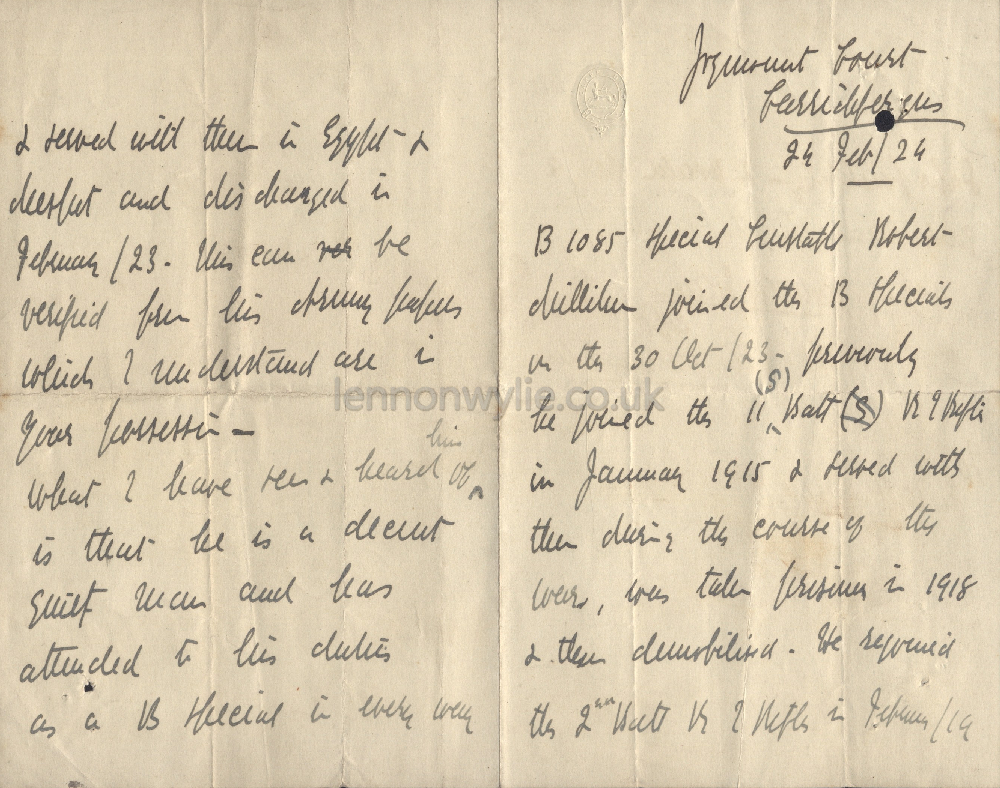 Joymount Court
Carrickfergus
24 Feb/24
B 1085 Special Constable Robert
Milliken joined the B Specials
on the 30 Oct /23 - previously
(S)
he joined the 11 Batt (S) R I Rifles
in January 1915 & served with
them during the course of the
war, was taken prisoner in 1918
& then demobilised. He rejoined
the 2nd Batt R I Rifles in February/19
& served with them in Egypt &
and discharged in
February /23. This can be
verified from his Army papers
which I understand are in
your possession -
him
What I have seen & heard of
is that he is a decent
quiet man and has
attended to his duties
as a B Special in every way
lennonwylie.co.uk